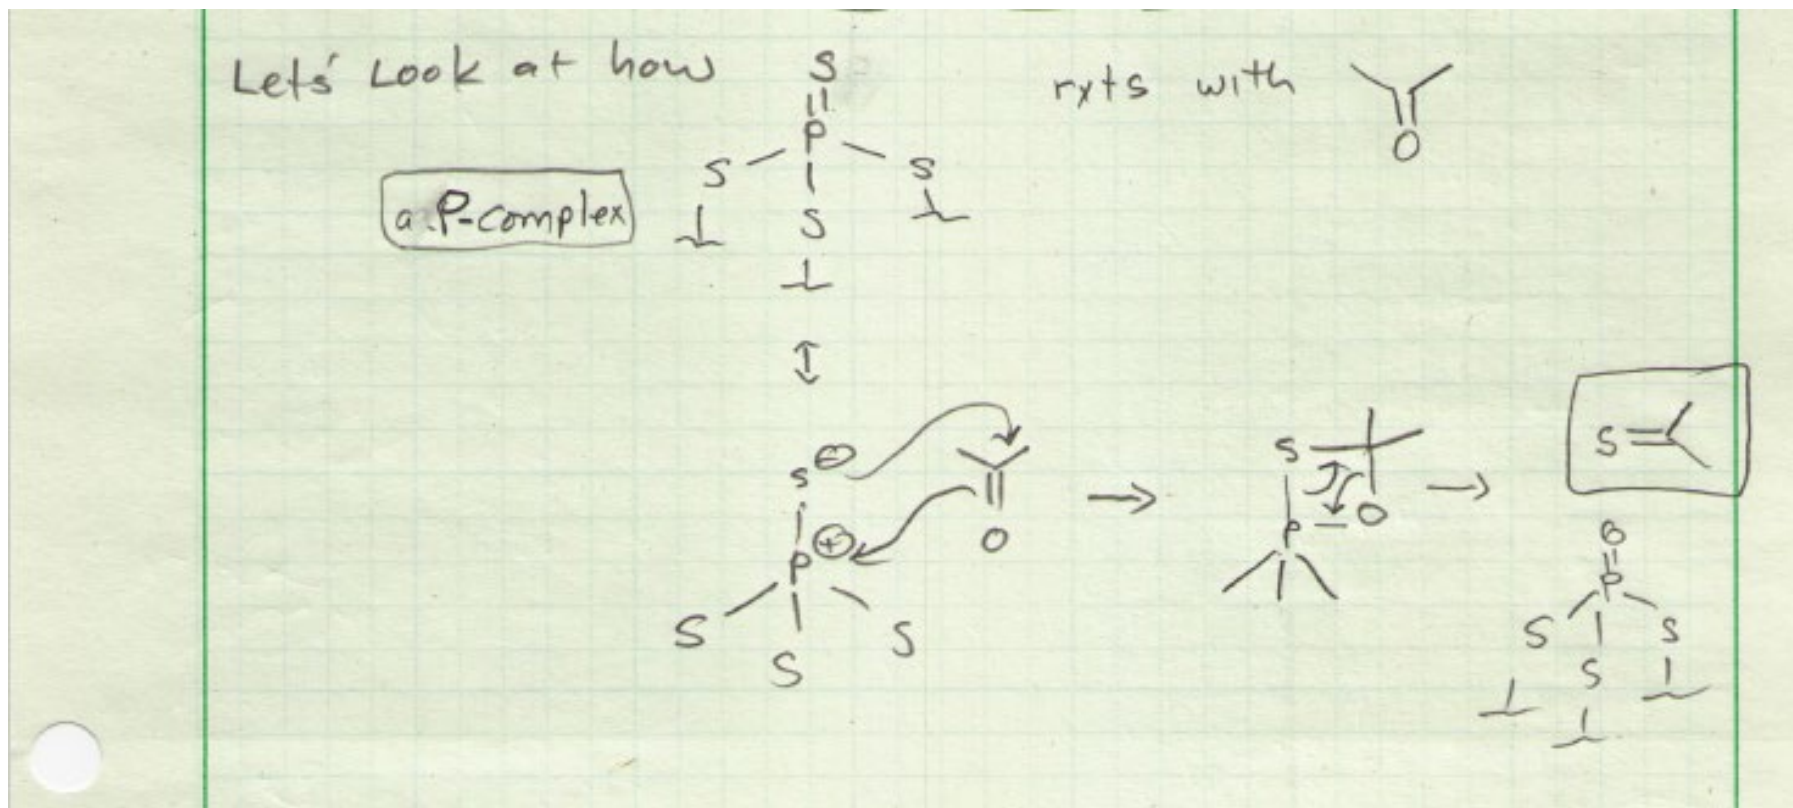 Lets' Look at how
S
P
rxts with
O
S
S
a P-complex
S
S ⊖
P ⊕
O
S
S
S
S
P
O
S
O
P
S
S
S